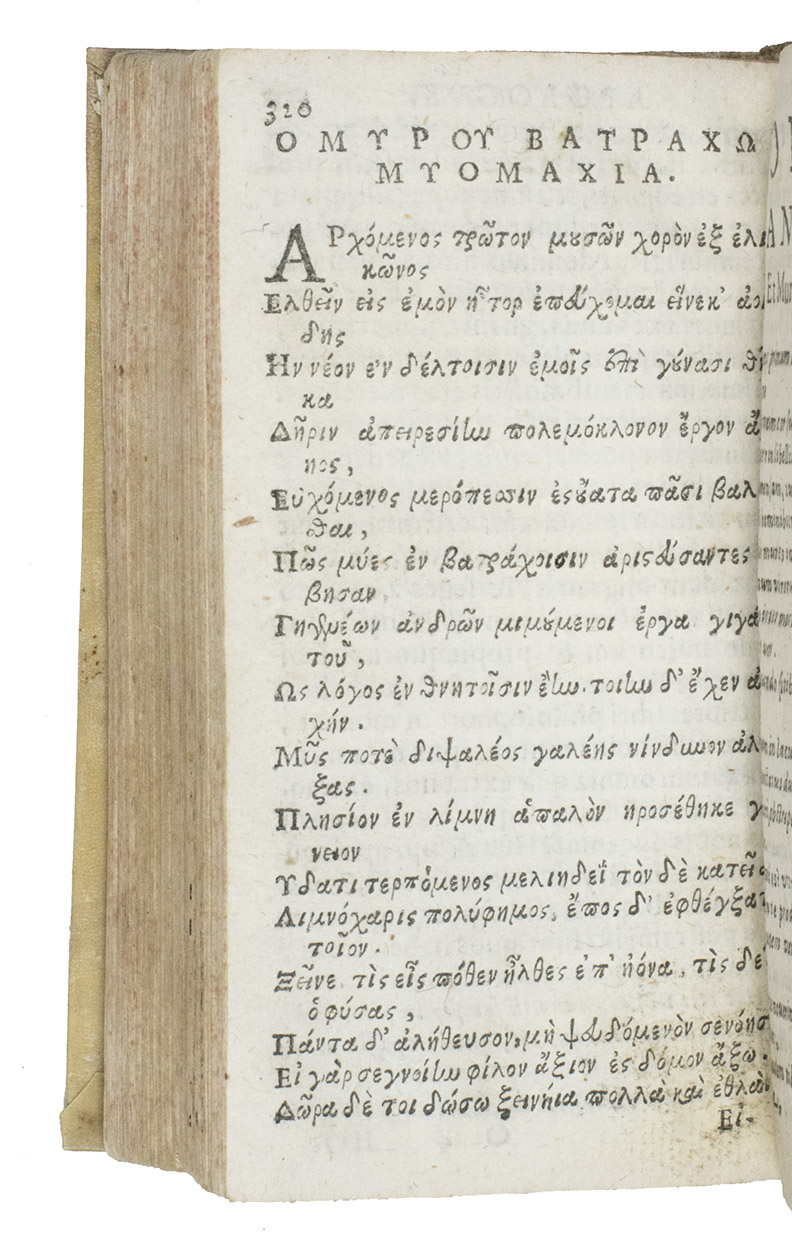 320
ΟΜΥΡΟΥ ΒΑΤΡΑΧΩ
ΜΥΟΜΑΧΙΑ.
ΑΡχόμενος πρῶτον μουσῶν χορὸν ἐξ ἑλι
κῶνος
Ελθεῖν εἰς ἐμὸν ἦτορ ἐπεύχομαι εἵνεκ' ἀοι
δῆς
Ην νέον ἐν δέλτοισιν ἐμοῖς ἐπὶ γούνασι θῆ
κα
Δῆριν ἀπειρεσίην πολεμόκλονον ἔργον ἄ
ηος,
Εὐχόμενος μερόπεσσιν ἐς οὔατα πᾶσι βαλ
θαι,
Πῶς μύες ἐν βατράχοισιν ἀριστεύσαντες
βησαν
Γηγενέων ἀνδρῶν μιμούμενοι ἔργα γιγά
των,
Ως λόγος ἐν θνητοῖσιν ἔην. τοίην δ' ἔχεν ἀ
χήν.
Μῦς ποτὲ διψαλέος γαλέης κίνδυνον ἀλ
ξας.
Πλησίον ἐν λίμνη ἁπαλὸν προσέθηκε γ
νειον
Υδατι τερπόμενος μελιηδεῖ τὸν δὲ κατεῖδ
Λιμνόχαρις πολύφημος, ἔπος δ' ἐφθέγξατ
τοῖον.
Ξεῖνε τὶς εἶς πόθεν ἦλθες ἐπ' ἠόνα, τὶς δέ
ὁ φύσας,
Πάντα δ' ἀλήθευσον, μὴ ψευδόμενόν σε νοήσ
Εἰ γάρ σε γνοίην φίλον ἄξιον ἐς δόμον ἄξω.
Δῶρα δὲ τοι δώσω ξεινήια πολλὰ καὶ ἐθλὰ
Εἰ-